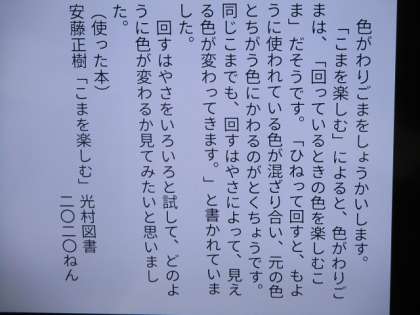 色がわりごまをしょうかいします。
「こまを楽しむ」によると、色がわりご
まは、「回っているときの色を楽しむこ
ま」だそうです。「ひねって回すと、もよ
うに使われている色が混ざり合い、元の色
とちがう色にかわるのがとくちょうです。
同じこまでも、回すはやさによって、見え
る色が変わってきます。」と書かれていま
した。
回すはやさをいろいろと試して、どのよ
うに色が変わるか見てみたいと思いまし
た。
（使った本）
安藤正樹「こまを楽しむ」光村図書
二〇二〇ねん